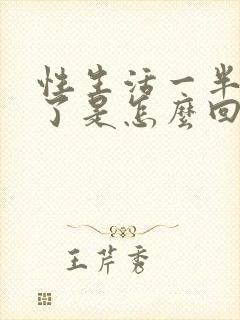 性生活一半
了是怎麼回
王芹秀